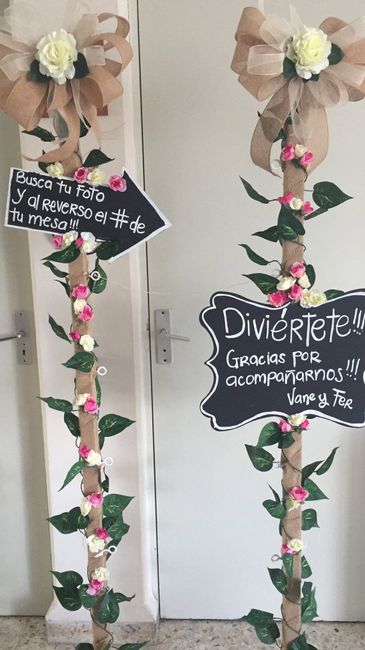 Busca tu foto
y al reverso el #de
tu mesa!!!
Diviértete!!!
Gracias por
acompañarnos!!!
Vane y Fer